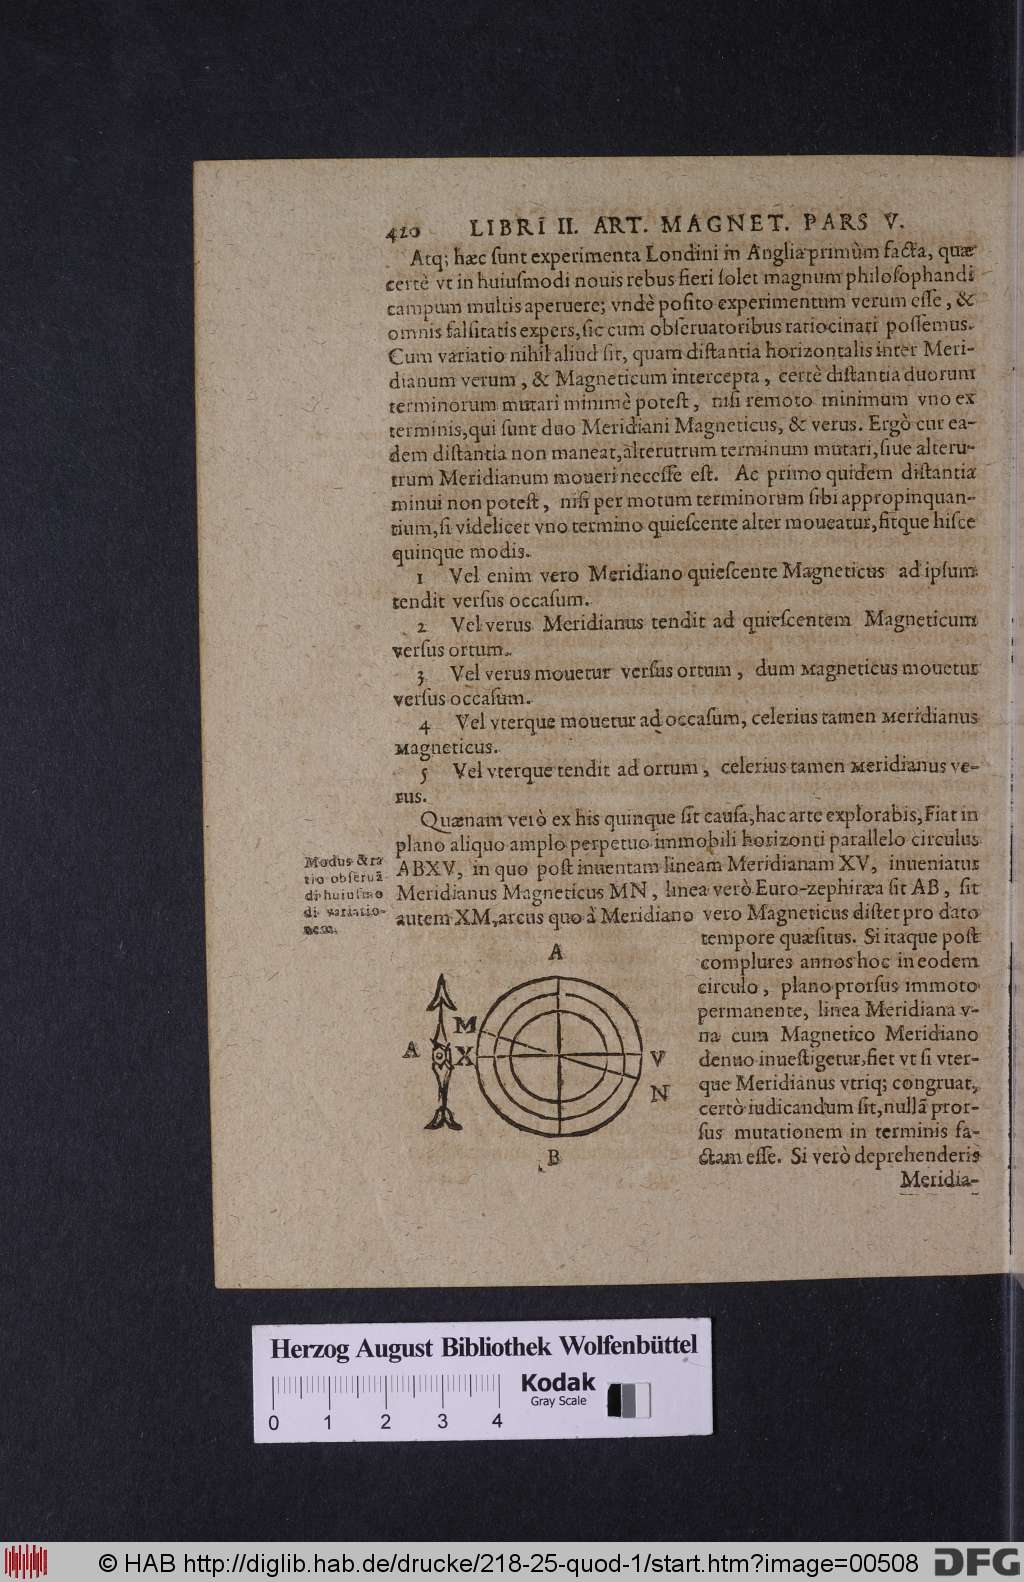 420 LIBRI II. ART. MAGNET. PARS V.
Atq; hæc ſunt experimenta Londini in Anglia primùm facta, quæ
certè vt in huiuſmodi nouis rebus fieri ſolet magnum philoſophandi
campum multis aperuere; vndè poſito experimentum verum eſſe, &
omnis falſitatis expers, ſic cum obſeruatoribus ratiocinari poſſemus.
Cum variatio nihil aliud ſit, quam diſtantia horizontalis inter Meri-
dianum verum, & Magneticum intercepta, certè diſtantia duorum
terminorum mutari minimè poteſt, niſi remoto minimum vno ex
terminis, qui ſunt duo Meridiani Magneticus, & verus. Ergò cur ea-
dem diſtantia non maneat, alterutrum terminum mutari, ſiue alteru-
trum Meridianum moueri neceſſe eſt. Ac primo quidem diſtantia
minui non poteſt, niſi per motum terminorum ſibi appropinquan-
tium, ſi videlicet vno termino quieſcente alter moueatur, fitque hiſce
quinque modis.
1 Vel enim vero Meridiano quieſcente Magneticus ad ipſum
tendit verſus occaſum.
2 Vel verus Meridianus tendit ad quieſcentem Magneticum
verſus ortum.
3 Vel verus mouetur verſus ortum, dum Magneticus mouetur
verſus occaſum.
4 Vel vterque mouetur ad occaſum, celerius tamen Meridianus
Magneticus.
5 Vel vterque tendit ad ortum, celerius tamen Meridianus ve-
rus.
Quænam verò ex his quinque ſit cauſa, hac arte explorabis, Fiat in
plano aliquo amplo perpetuo immobili horizonti parallelo circulus
ABXV, in quo poſt inuentam lineam Meridianam XV, inueniatur
Meridianus Magneticus MN, linea verò Euro-zephiræa ſit AB, ſit
autem XM, arcus quo à Meridiano vero Magneticus diſtet pro dato
Modus & ra
tio obſeruã
di huiuſmo
di variatio-
nem.
tempore quæſitus. Si itaque poſt
complures annos hoc in eodem
circulo, plano prorſus immoto
permanente, linea Meridiana v-
na cum Magnetico Meridiano
denuo inueſtigetur, fiet vt ſi vter-
que Meridianus vtriq; congruat,
certò iudicandum ſit, nullã pror-
ſus mutationem in terminis fa-
ctam eſſe. Si verò deprehenderis
Meridia-
A
M
A X V
N
B
Herzog August Bibliothek Wolfenbüttel
Kodak
Gray Scale
0 1 2 3 4
© HAB http://diglib.hab.de/drucke/218-25-quod-1/start.htm?image=00508
DFG